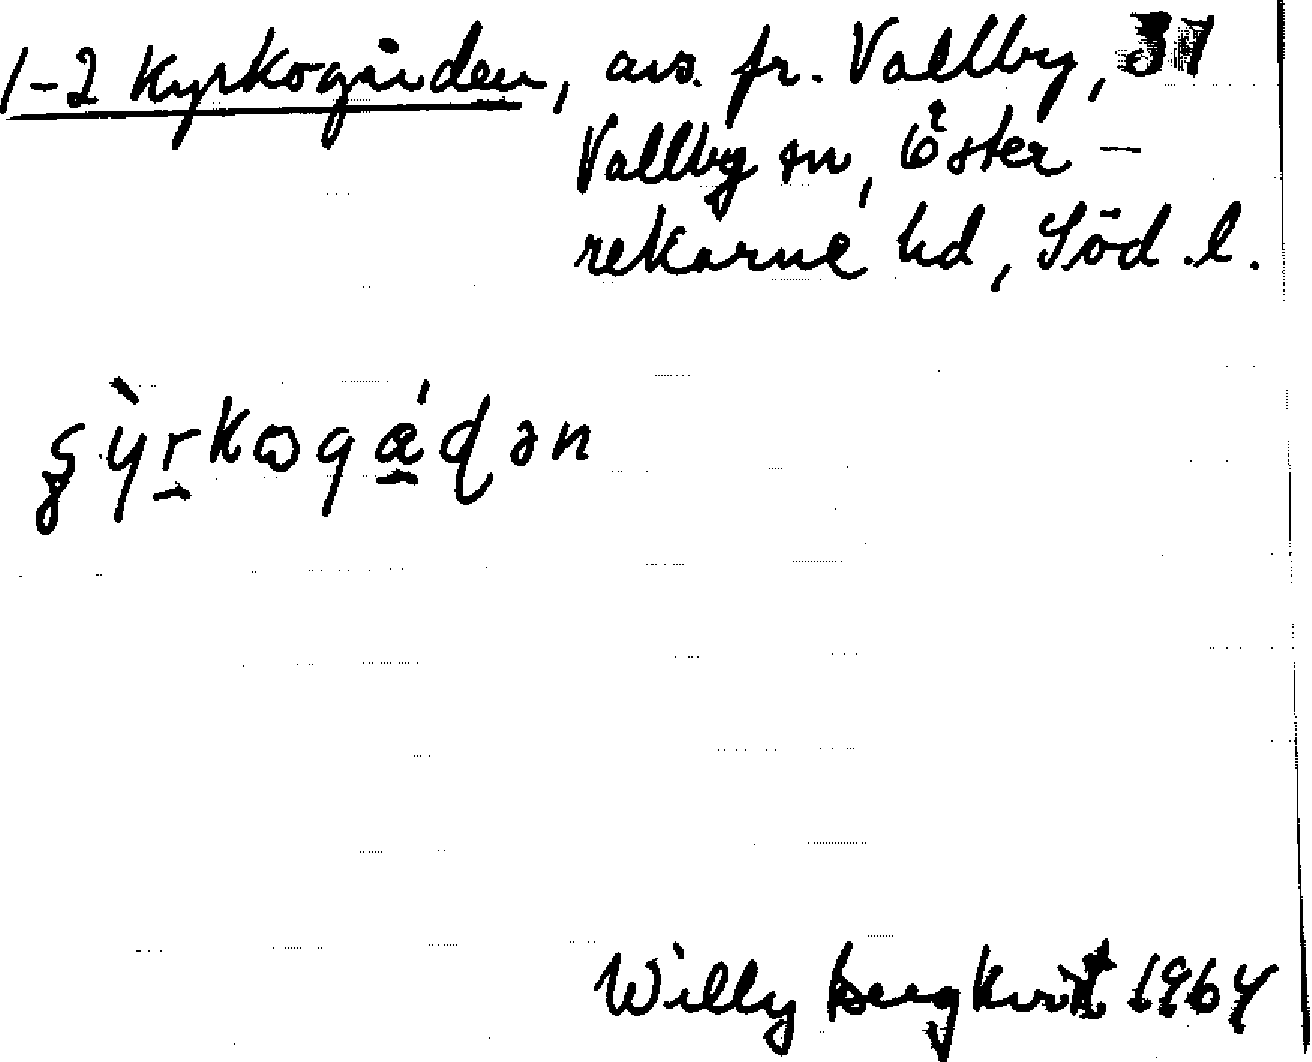 1-2 Kyrkogården, avs. fr. Vallby, 31
Vallby sn, Öster-
rekarne hd, Söd. l.
Willy Bergkvist 1964